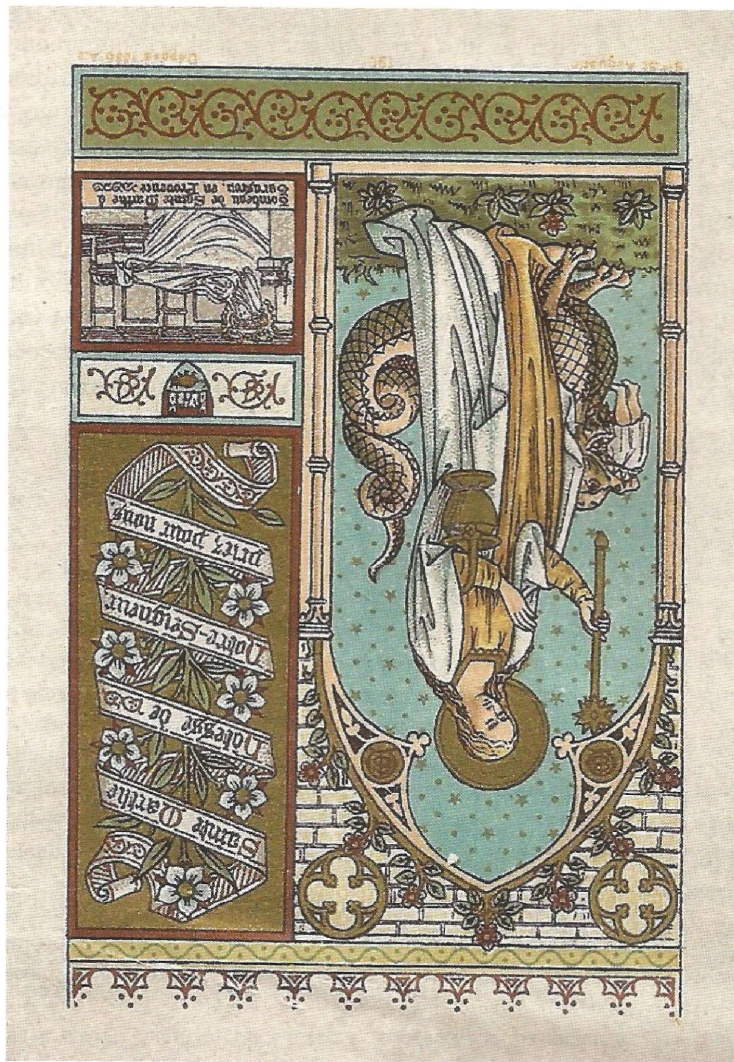 Sainte Marthe
Hôtesse de
Notre-Seigneur
priez pour nous.
Tombeau de Sainte Marthe à
Tarascon, en Provence
Augustin